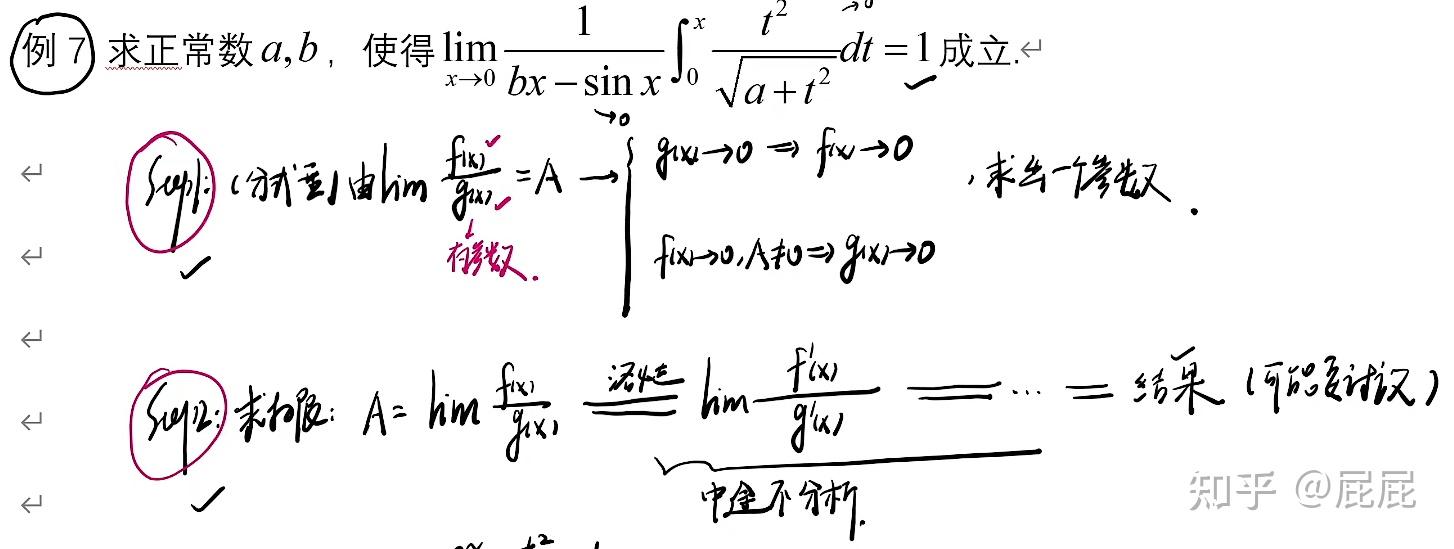 例 7 求正常数 a,b，使得 lim x→0 1/(bx − sin x) ∫₀ˣ t²/√(a + t²) dt = 1 成立.↵
→0
→0
Step1: (分式型) 由 lim f(x)/g(x) = A → { g(x)→0 ⇒ f(x)→0 ，求出一个参数.
有参数.
f(x)→0, A≠0 ⇒ g(x)→0
Step2: 求极限: A = lim f(x)/g(x) 洛必达 lim f'(x)/g'(x) = … = 结果 (可能要讨论)
中途不分析.
知乎 @屁屁
t²